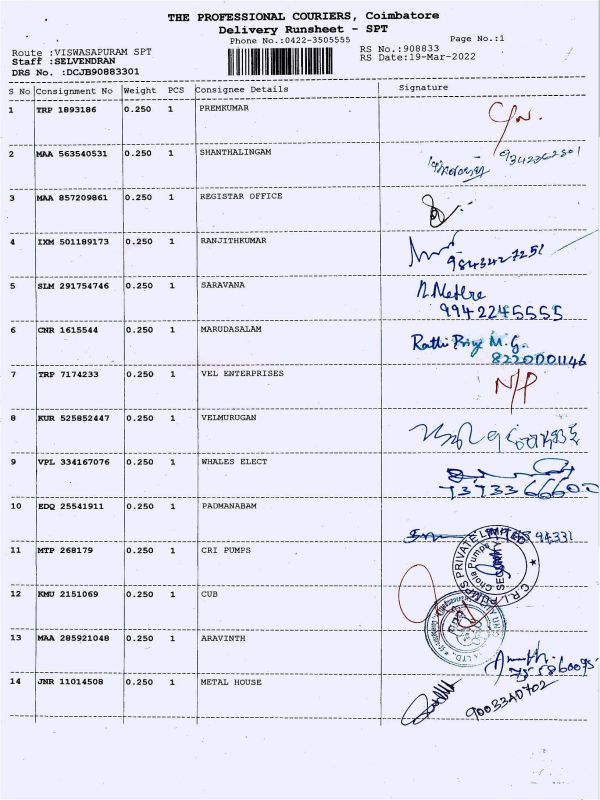 THE PROFESSIONAL COURIERS, Coimbatore
Delivery Runsheet - SPT
Phone No.:0422-3505555
Page No.:1
Route :VISWASAPURAM SPT
RS No.:908833
Staff :SELVENDRAN
RS Date:19-Mar-2022
DRS No. :DCJB90883301
S No Consignment No Weight PCS Consignee Details Signature
1 TRP 1893186 0.250 1 PREMKUMAR
2 MAA 563540531 0.250 1 SHANTHALINGAM
3 MAA 857209861 0.250 1 REGISTAR OFFICE
4 IXM 501189173 0.250 1 RANJITHKUMAR 9843427251
5 SLM 291754746 0.250 1 SARAVANA
9942245555
6 CNR 1615544 0.250 1 MARUDASALAM Rathi Priy M.G.
8220001146
7 TRP 7174233 0.250 1 VEL ENTERPRISES N/P
8 KUR 525852447 0.250 1 VELMURUGAN
9 VPL 334167076 0.250 1 WHALES ELECT
10 EDQ 25541911 0.250 1 PADMANABAM
11 MTP 268179 0.250 1 CRI PUMPS C.R.I. PUMPS PRIVATE LIMITED
Chola Pumps
12 KMU 2151069 0.250 1 CUB
13 MAA 285921048 0.250 1 ARAVINTH
14 JNR 11014508 0.250 1 METAL HOUSE